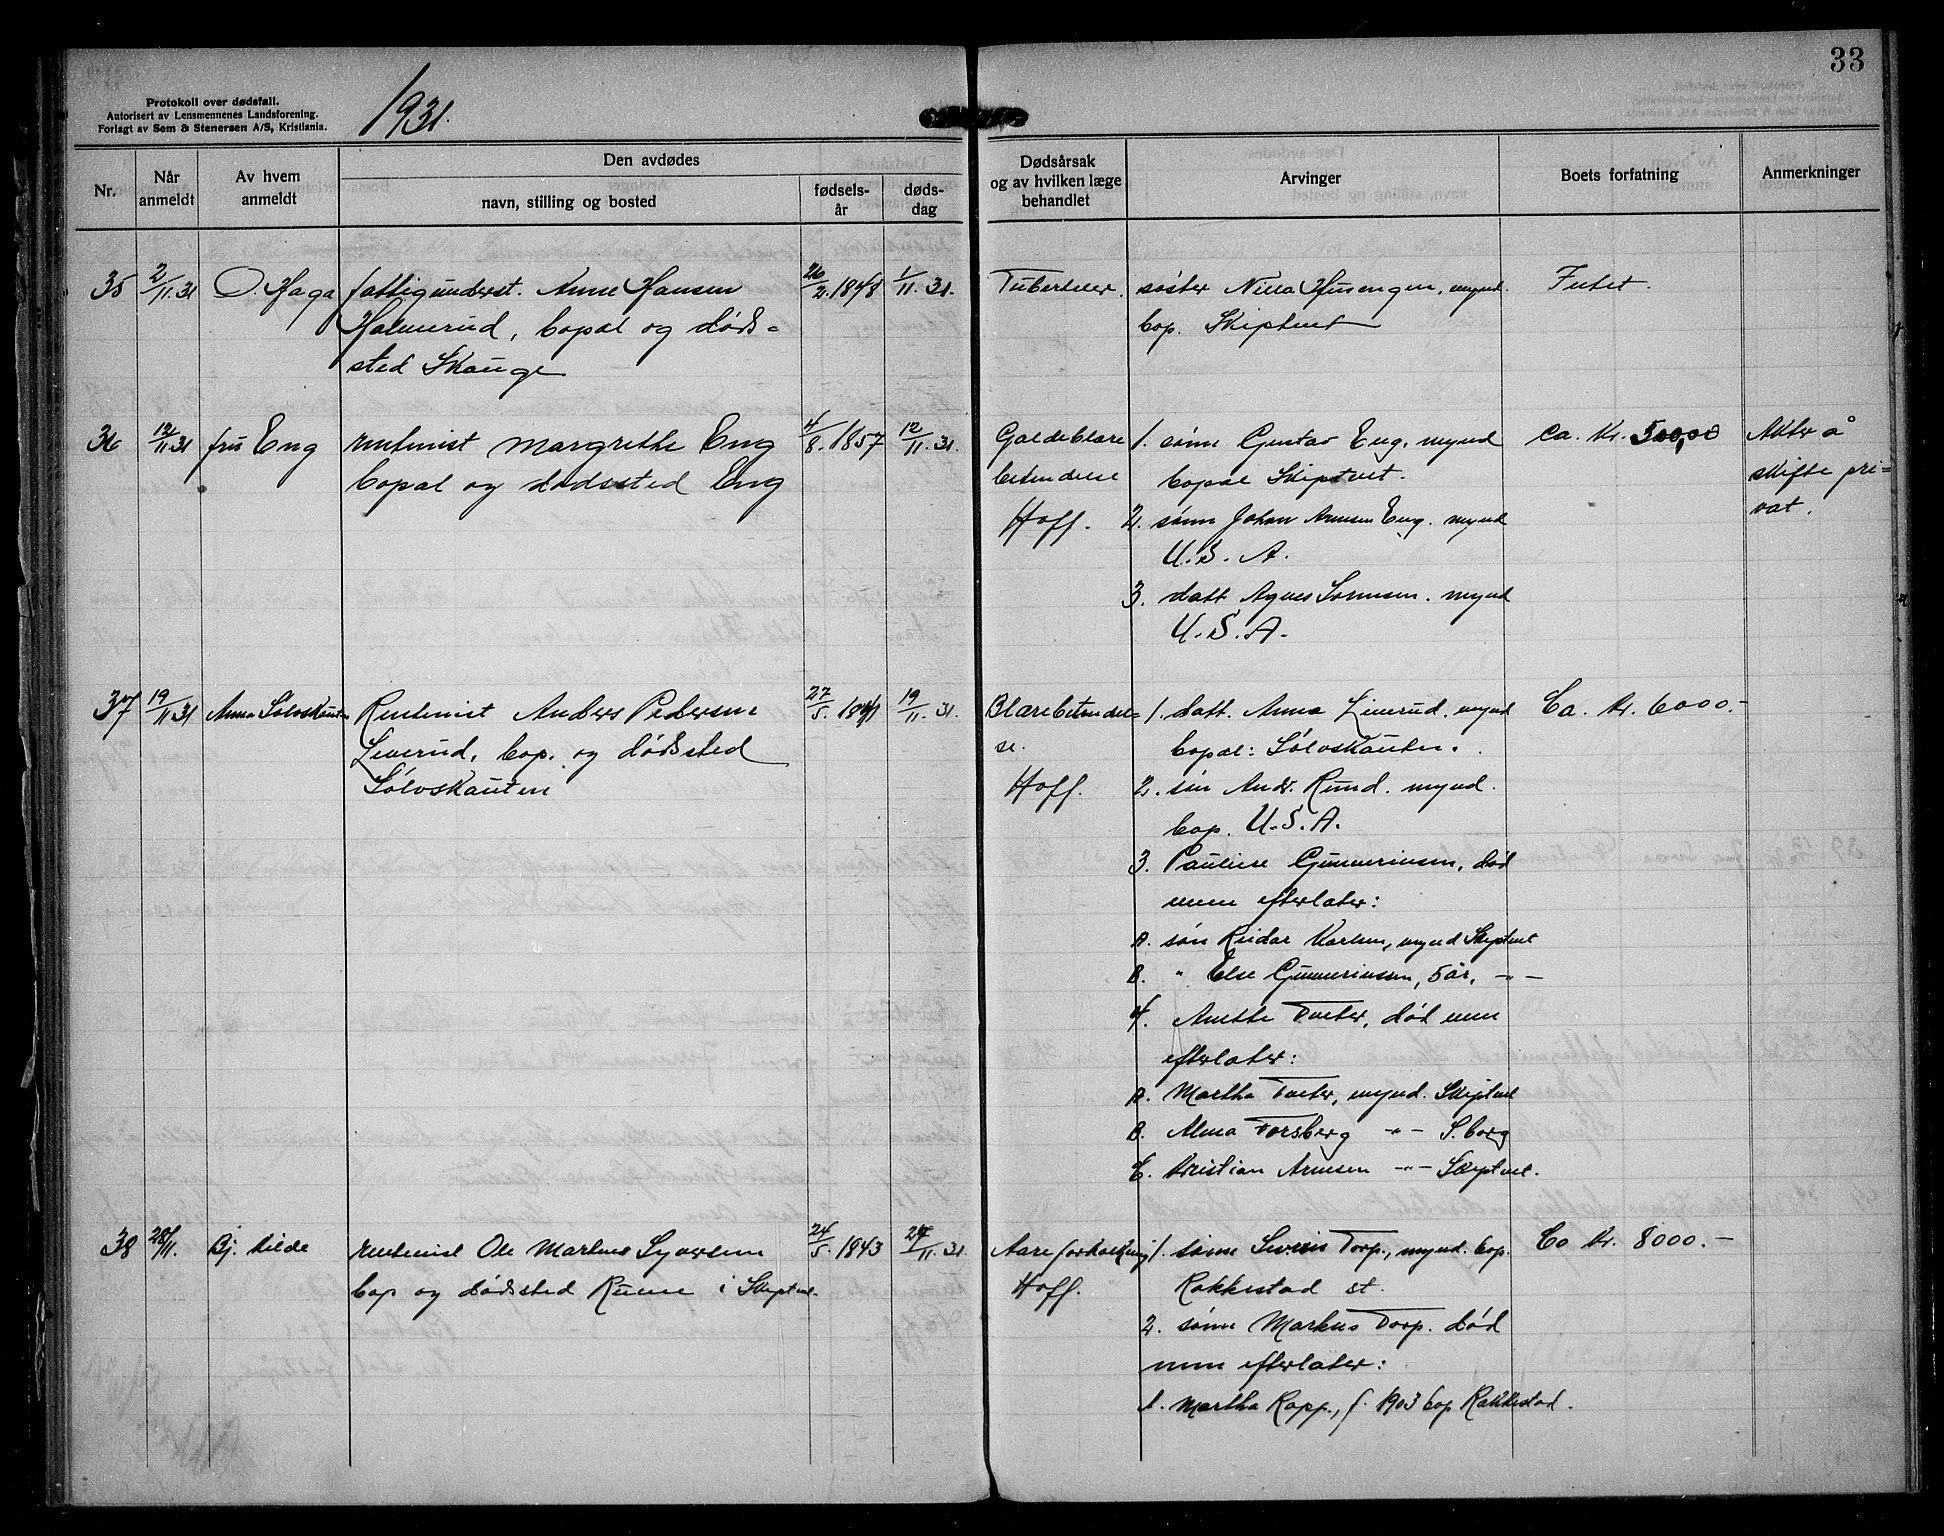 33
Protokoll over dødsfall.
Autorisert av Lensmennenes Landsforening.
Forlagt av Sem & Stenersen A/S, Kristiania.
1931.
Nr.
Når anmeldt
Av hvem anmeldt
Den avdødes
navn, stilling og bosted
fødsels-år
døds-dag
Dødsårsak og av hvilken læge behandlet
Arvinger
Boets forfatning
Anmerkninger
35 2/11.31 O. Haga fattigunderst. Anne Hansen 26/2.1848 1/11.31.
Halmerud, bopæl og døds-
sted Skauge
søster Husengen, mynd.
bop. Skiptvet
Intet.
36 12/11.31 fru Eng rentenist Margrethe Eng 4/8.1857 12/11.31.
bopæl og dødssted Eng
Galdeblære
betendelse
Hoff.
1. sønn Gustav Eng, mynd
bopæl Skiptvet.
2. sønn Johan Arnesen Eng. mynd
U.S.A.
3. datt Agnes Sørensen. mynd
U.S.A.
ca. kr. 500,00
Akter å
skifte pri-
vat.
37 19/11.31 Anna Sølvskauten Rentenist Anders Pedersen 27/5.1841 19/11.31.
Liverud, bop. og dødssted
Sølvskauten
Blærebetendel-
se.
Hoff.
1. datt. Anna Liverud. mynd
bopæl: Sølvskauten.
2. søn Andr. Rund. mynd.
bop. U.S.A.
3. Pauline Gunneriussen, død
men efterlater:
A. søn Reidar Karlsen, mynd Skiptvet
B. " Else Gunneriussen, 5 år, -"-
4. Anette Tveter, død men
efterlater:
A. Martha Tveter, mynd. Skiptvet
B. Alma Forsberg -"- S.borg
C. Kristian Arnesen -"- Skiptvet.
Ca. kr. 6000.-
38 28/11. Bj. Kilde rentenist Ole Martinus Syversen 24/5.1843 27/11.31.
bop og dødssted Rune i Skiptvet.
Åreforkalkning
Hoff.
1. sønn Severin Torp, mynd. bop.
Rakkestad st.
2. sønn Markus Torp. død
men efterlater:
A. Martha Rapp, f. 1903 bop Rakkestad.
Ca kr. 8000.-